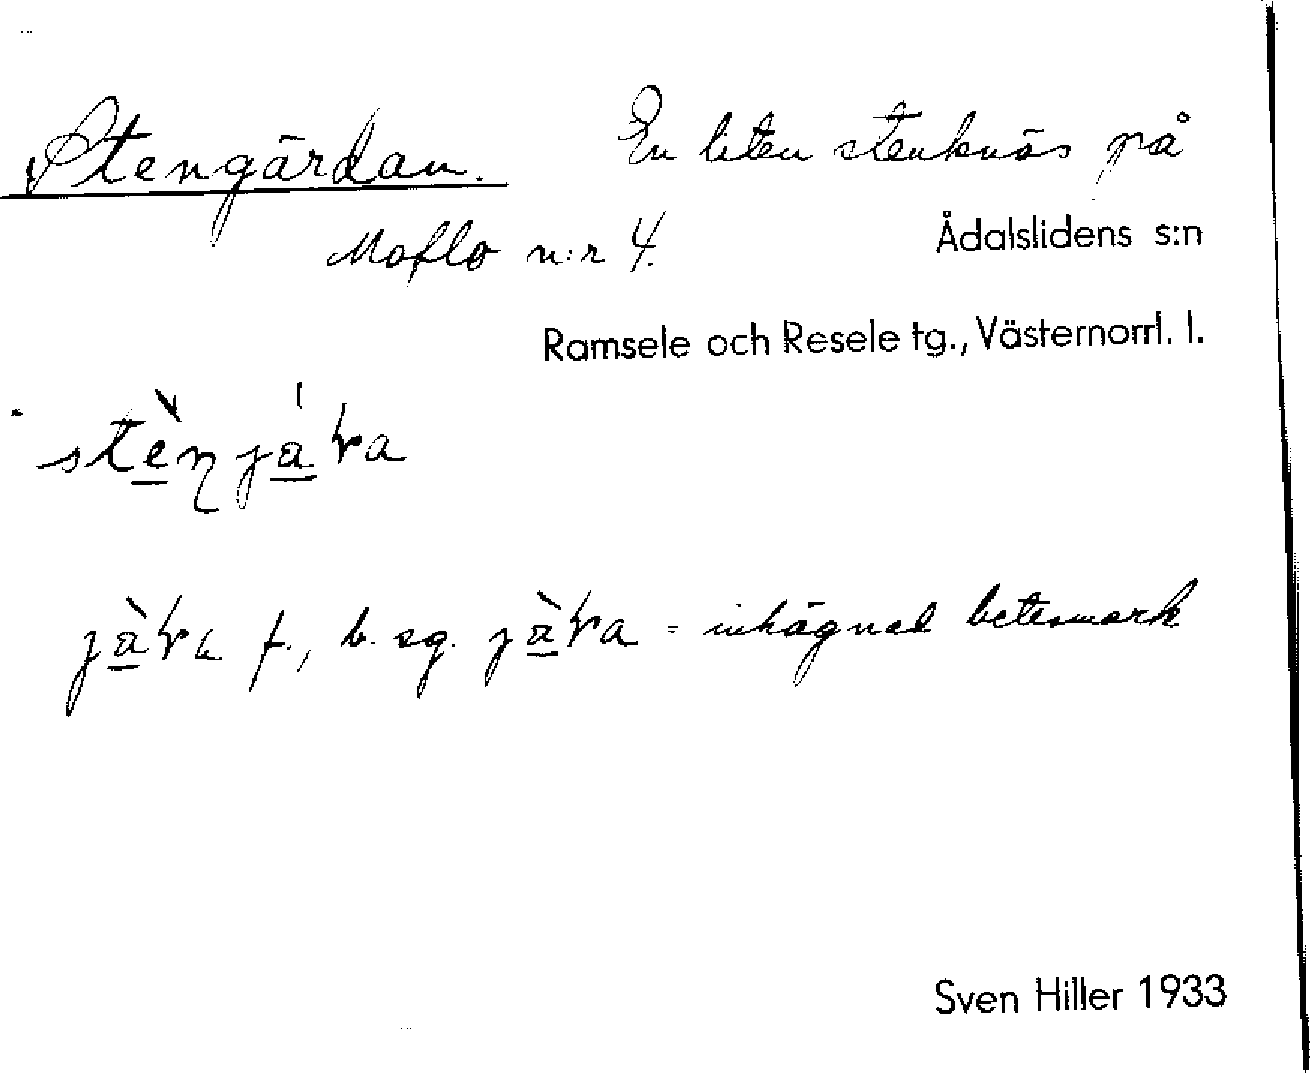 Stengärdan. En liten stenknös på
Moflo n:r 4.
Ådalslidens s:n
Ramsele och Resele tg., Västernorrl. l.
f., b. sg. = inhägnad betesmark
Sven Hiller 1933